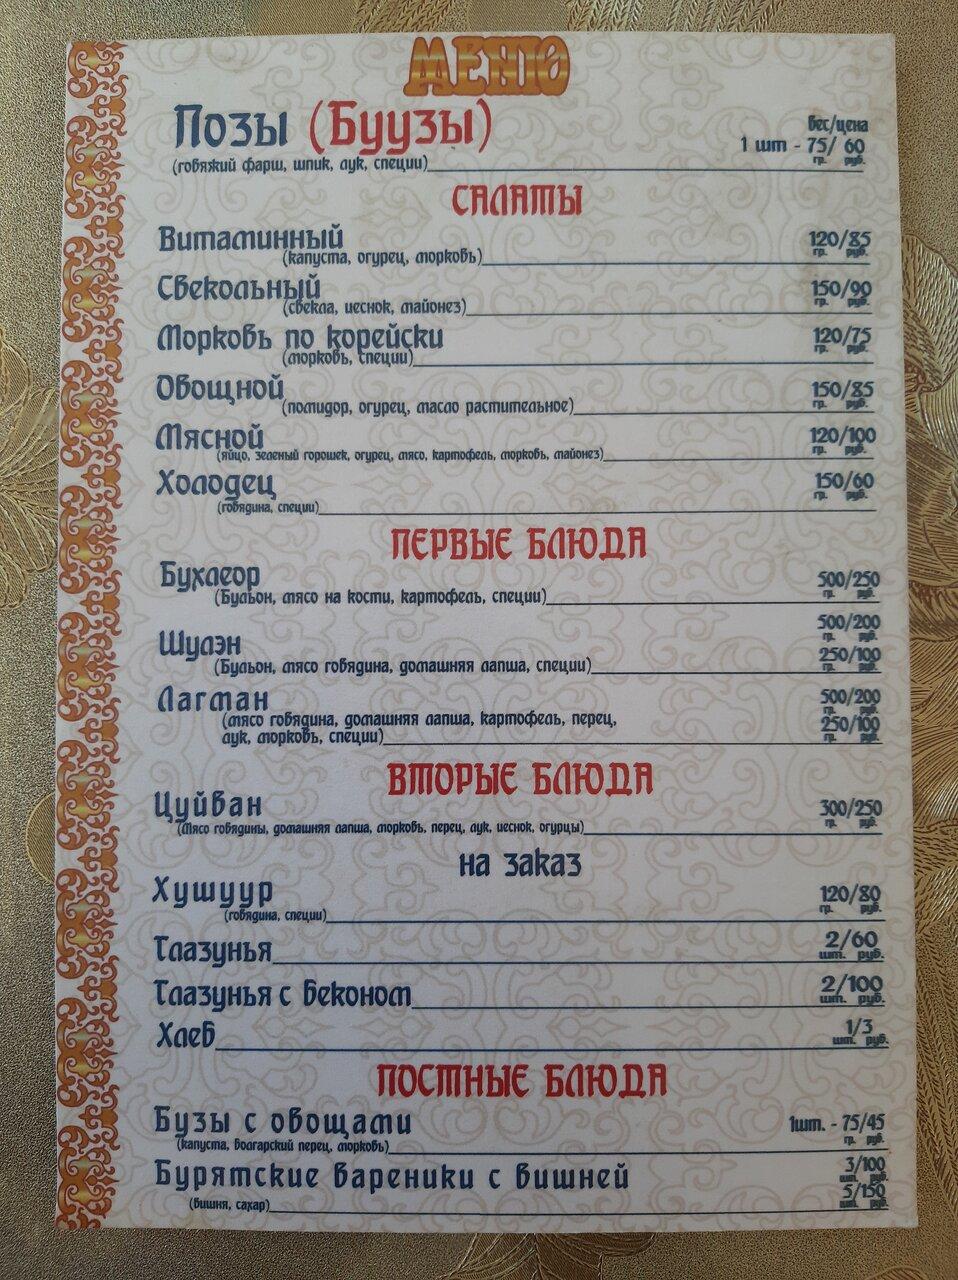 МЕНЮ
Позы (Буузы)
вес/цена
1 шт - 75/ 60
гр. руб.
(говяжий фарш, шпик, лук, специи)
САЛАТЫ
Витаминный 120/85
(капуста, огурец, морковь) гр. руб.
Свекольный 150/90
(свекла, чеснок, майонез) гр. руб.
Морковь по корейски 120/75
(морковь, специи) гр. руб.
Овощной 150/85
(помидор, огурец, масло растительное) гр. руб.
Мясной 120/100
(яйцо, зеленый горошек, огурец, мясо, картофель, морковь, майонез) гр. руб.
Холодец 150/60
(говядина, специи) гр. руб.
ПЕРВЫЕ БЛЮДА
Бухлеор 500/250
(Бульон, мясо на кости, картофель, специи) гр. руб.
500/200
гр. руб.
Шулэн 250/100
(Бульон, мясо говядина, домашняя лапша, специи) гр. руб.
Лагман 500/200
гр. руб.
(мясо говядина, домашняя лапша, картофель, перец, 250/100
лук, морковь, специи) гр. руб.
ВТОРЫЕ БЛЮДА
Цуйван 300/250
(Мясо говядины, домашняя лапша, морковь, перец, лук, чеснок, огурцы) гр. руб.
на заказ
Хушуур 120/80
(говядина, специи) гр. руб.
Глазунья 2/60
шт. руб.
Глазунья с беконом 2/100
шт. руб.
Хлеб 1/3
шт. руб.
ПОСТНЫЕ БЛЮДА
Бузы с овощами 1шт. - 75/45
(капуста, болгарский перец, морковь) гр. руб.
Бурятские вареники с вишней 3/100
шт. руб.
5/150
(вишня, сахар) шт. руб.